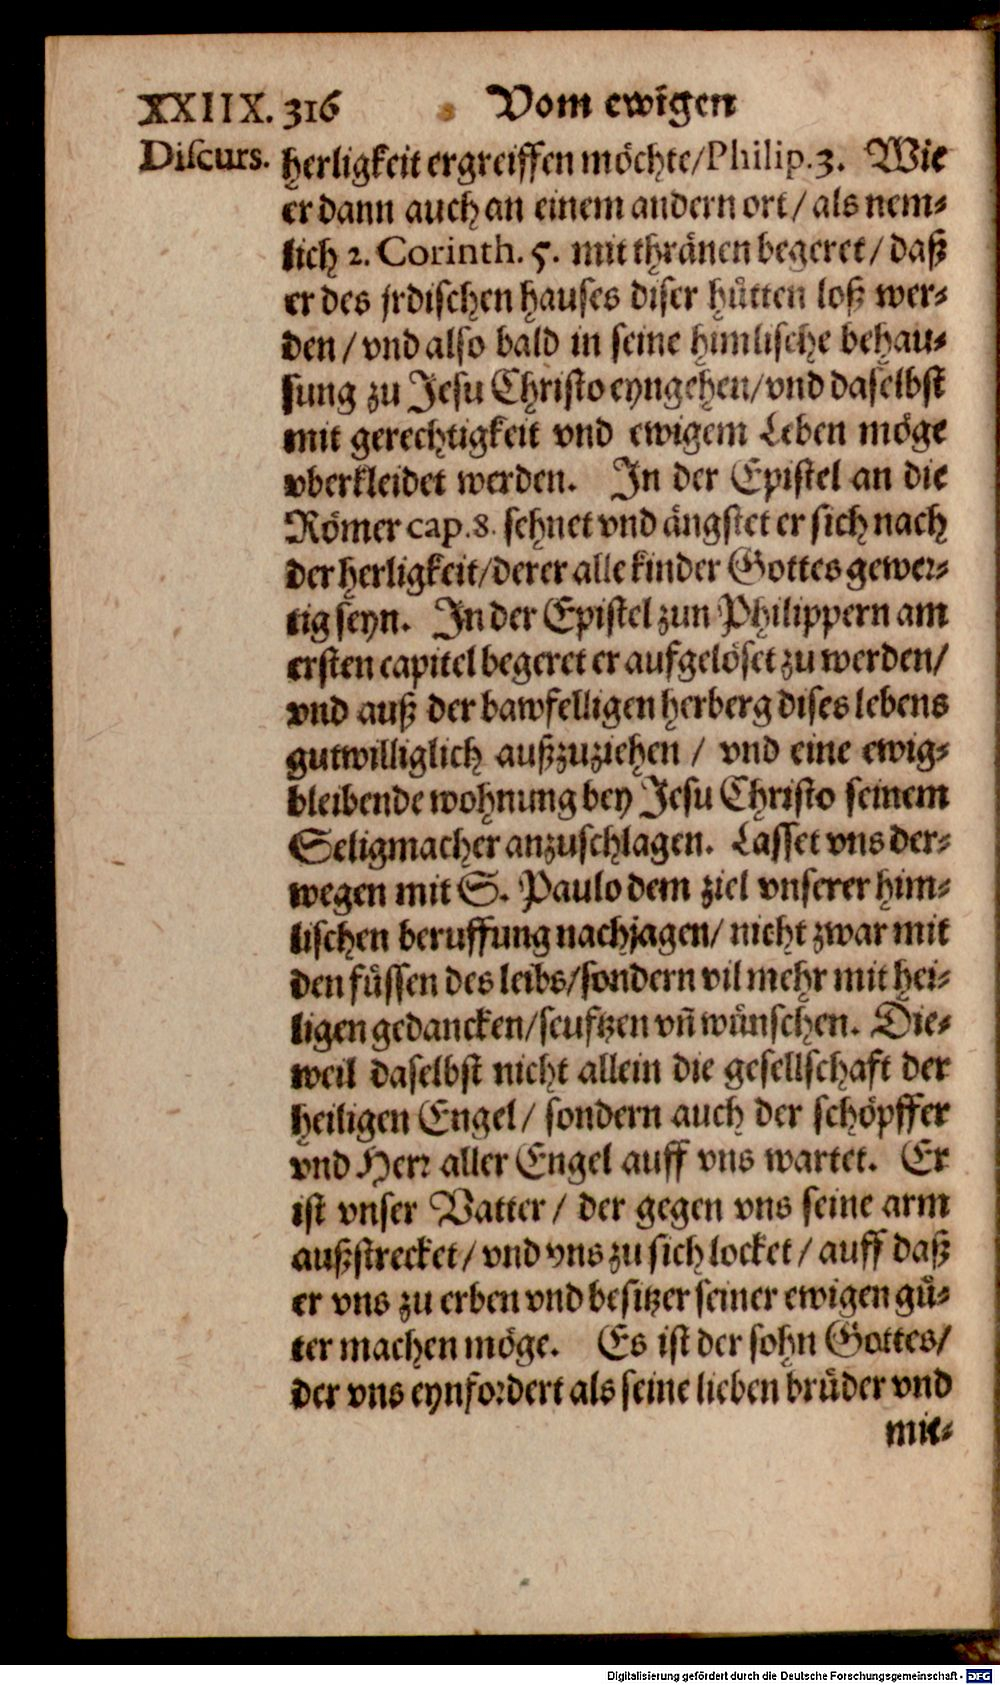 XXIIX. 316 Vom ewigen
Discurs. herligkeit ergreiffen möchte/Philip.3. Wie
er dann auch an einem andern ort/ als nem⸗
lich 2. Corinth. 5. mit thränen begeret/ daß
er des jrdischen hauses diser hütten loß wer⸗
den/ vnd also bald in seine himlische behau⸗
sung zu Jesu Christo eyngehen/vnd daselbst
mit gerechtigkeit vnd ewigem Leben möge
vberkleidet werden. In der Epistel an die
Römer cap.8. sehnet vnd ängstet er sich nach
der herligkeit/derer alle kinder Gottes gewer⸗
tig seyn. In der Epistel zun Philippern am
ersten capitel begeret er aufgelöset zu werden/
vnd auß der bawfelligen herberg dises lebens
gutwilliglich außzuziehen / vnd eine ewig⸗
bleibende wohnung bey Jesu Christo seinem
Seligmacher anzuschlagen. Lasset vns der⸗
wegen mit S. Paulo dem ziel vnserer him⸗
lischen beruffung nachjagen/ nicht zwar mit
den füssen des leibs/sondern vil mehr mit hei⸗
ligen gedancken/seuftzen vñ wünschen. Die⸗
weil daselbst nicht allein die gesellschaft der
heiligen Engel/ sondern auch der schöpffer
vnd Herr aller Engel auff vns wartet. Er
ist vnser Vatter/ der gegen vns seine arm
außstrecket/ vnd vns zu sich locket/ auff daß
er vns zu erben vnd besitzer seiner ewigen gü⸗
ter machen möge. Es ist der sohn Gottes/
der vns eynfordert als seine lieben brüder vnd
mit⸗
Digitalisierung gefördert durch die Deutsche Forschungsgemeinschaft - DFG